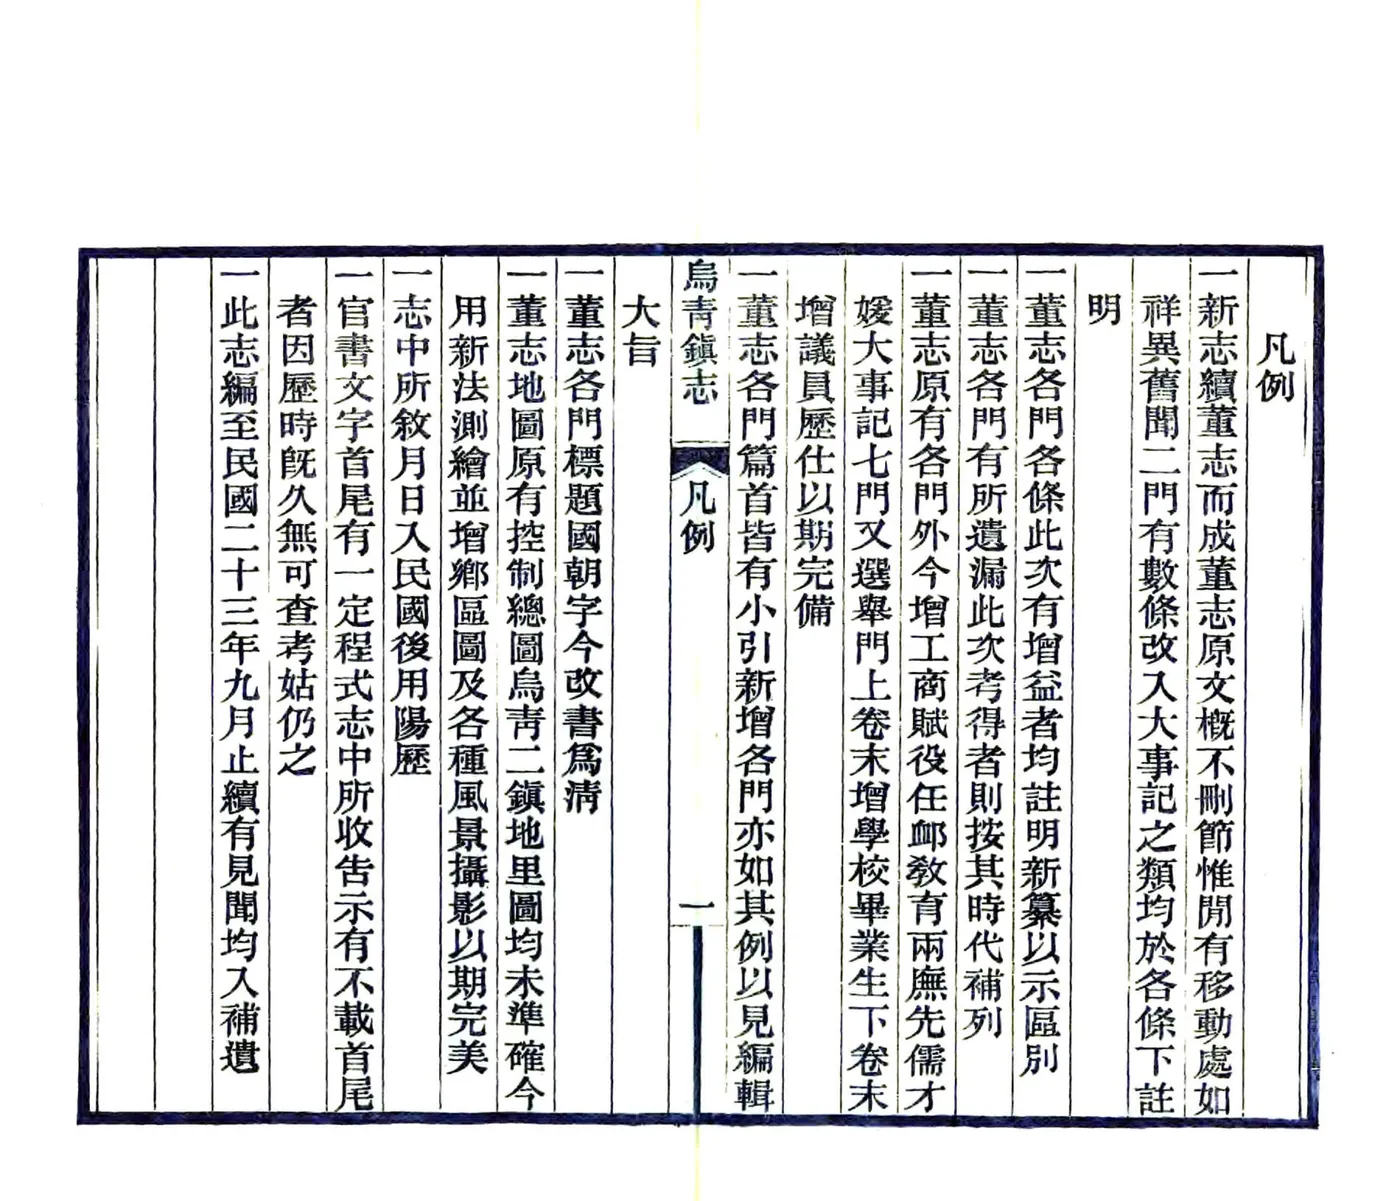 凡例
一新志續董志而成董志原文槪不刪節惟間有移動處如
祥異舊聞二門有數條改入大事記之類均於各條下註
明
一董志各門各條此次有增益者均註明新纂以示區別
一董志各門有所遺漏此次考得者則按其時代補列
一董志原有各門外今增工商賦役任卹敎育兩廡先儒才
媛大事記七門又選舉門上卷末增學校畢業生下卷末
增議員歷仕以期完備
一董志各門篇首皆有小引新增各門亦如其例以見編輯
烏靑鎭志
凡例
一
大旨
一董志各門標題國朝字今改書爲淸
一董志地圖原有控制總圖烏靑二鎭地里圖均未準確今
用新法測繪並增鄕區圖及各種風景攝影以期完美
一志中所敘月日入民國後用陽歷
一官書文字首尾有一定程式志中所收告示有不載首尾
者因歷時旣久無可查考姑仍之
一此志編至民國二十三年九月止續有見聞均入補遺